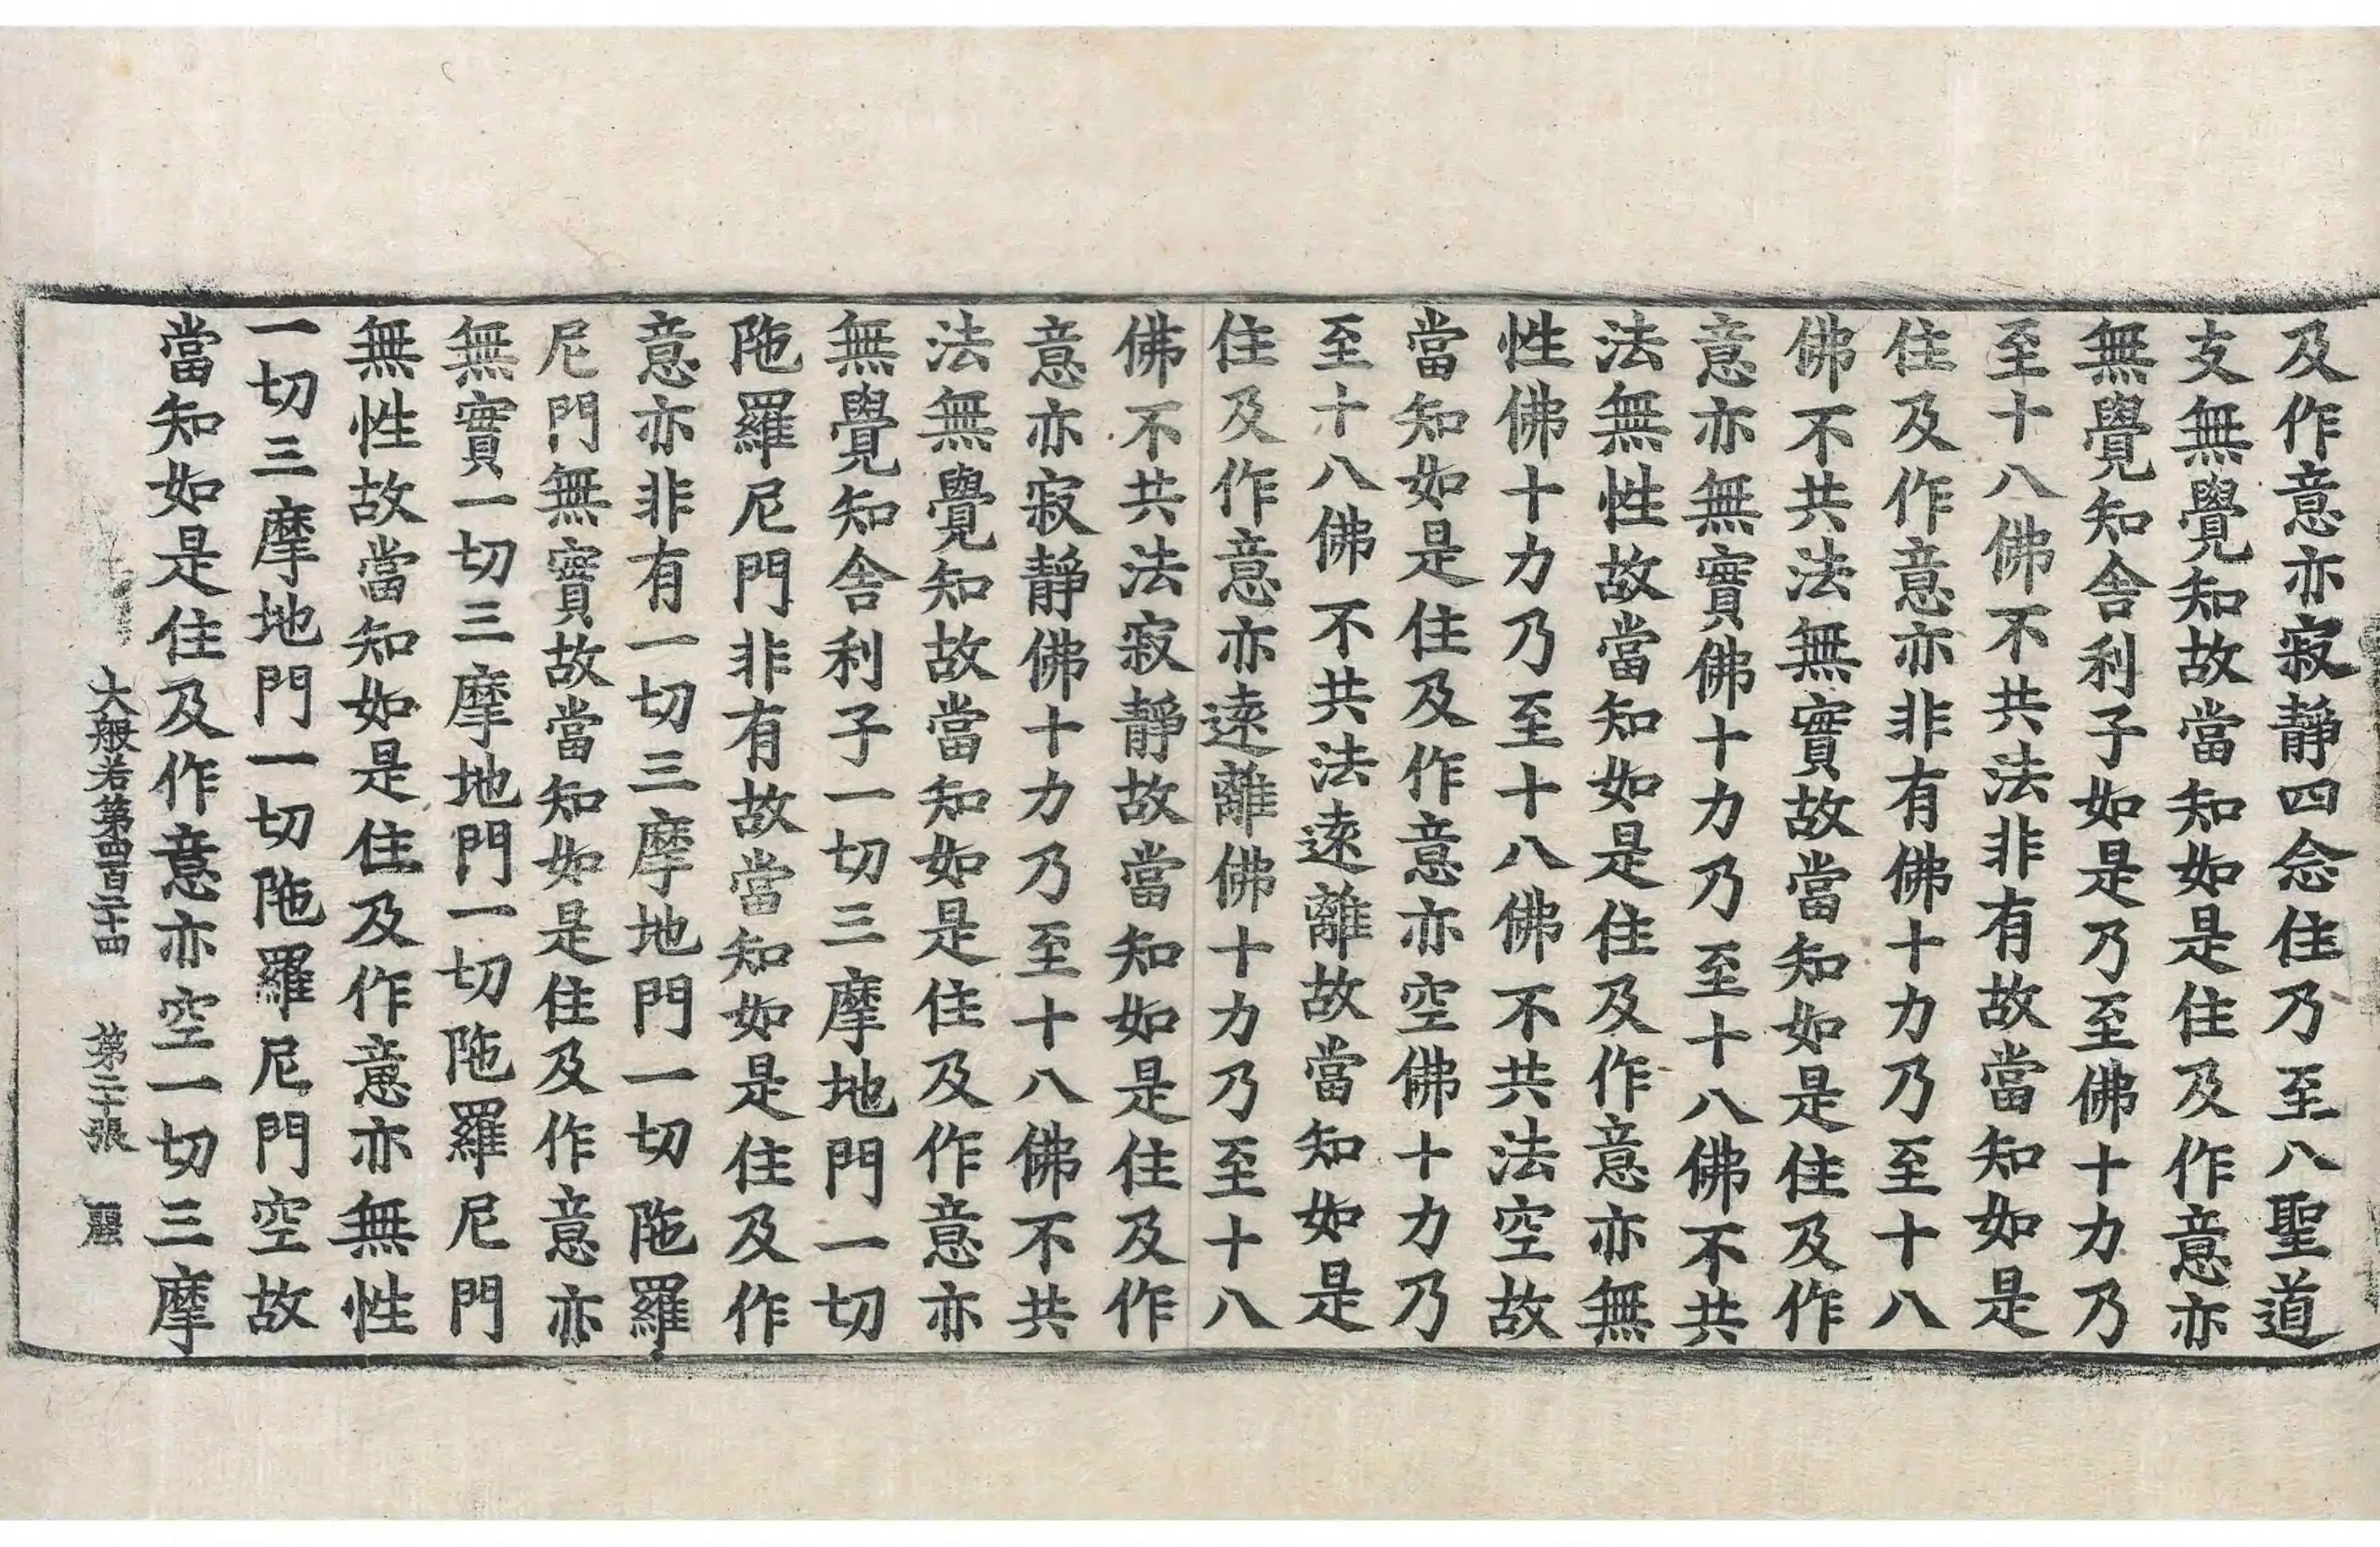 及作意亦寂靜四念住乃至八聖道
支無覺知故當知如是住及作意亦
無覺知舍利子如是乃至佛十力乃
至十八佛不共法非有故當知如是
住及作意亦非有佛十力乃至十八
佛不共法無實故當知如是住及作
意亦無實佛十力乃至十八佛不共
法無性故當知如是住及作意亦無
性佛十力乃至十八佛不共法空故
當知如是住及作意亦空佛十力乃
至十八佛不共法遠離故當知如是
住及作意亦遠離佛十力乃至十八
佛不共法寂靜故當知如是住及作
意亦寂靜佛十力乃至十八佛不共
法無覺知故當知如是住及作意亦
無覺知舍利子一切三摩地門一切
陁羅尼門非有故當知如是住及作
意亦非有一切三摩地門一切陁羅
尼門無實故當知如是住及作意亦
無實一切三摩地門一切陁羅尼門
無性故當知如是住及作意亦無性
一切三摩地門一切陁羅尼門空故
當知如是住及作意亦空一切三摩
大般若第四百二十四 第二十張 麗